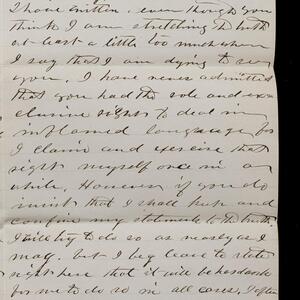 I have written, even though you
think I am stretching the truth
at least a little too much when
I say that I am dying to see
you. I have never admitted
that you had the sole and ex
clusive rights to deal in
inflamed language, for
I claim and exercise that
right myself once in a
while. However if you do
insist that I shall keep and
confine my statements to the truth,
I will try to do so as nearly as I
may, but I beg leave to state
right here that it will be hard work
for me to do so in all cases. I often